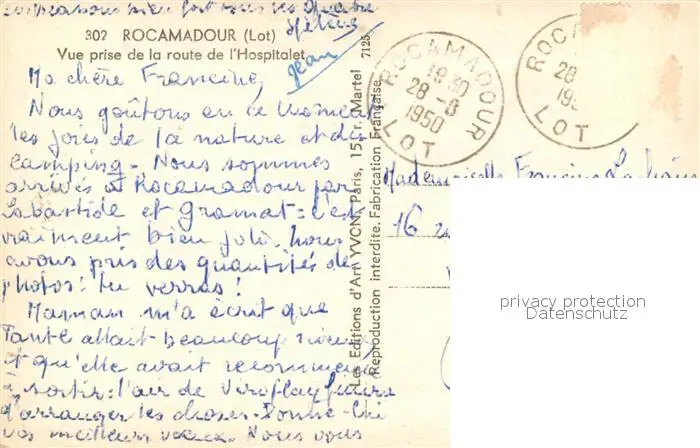 embrassons bien fort tous les quatre
Hélène
Jean
302 ROCAMADOUR (Lot)
Vue prise de la route de l'Hospitalet
7125
Ma chère Francine,
Nous goûtons en ce moment
les joies de la nature et du
camping. Nous sommes
arrivés à Rocamadour par
Labastide et Gramat: c'est
vraiment bien joli. Nous
avons pris des quantités de
photos: tu verras!
Maman m'a écrit que
Tante allait beaucoup mieux
et qu'elle avait recommencé
à sortir: l'air de Viroflay
d'arranger les choses.
vos meilleurs vœux. Nous vous
Les Editions d'Art YVON, Paris, 15, r. Martel
Reproduction interdite. Fabrication Française
ROCAMADOUR
1930
28-8
1950
LOT
ROCA
28
195
LOT
Mademoiselle Francine
16
privacy protection
Datenschutz